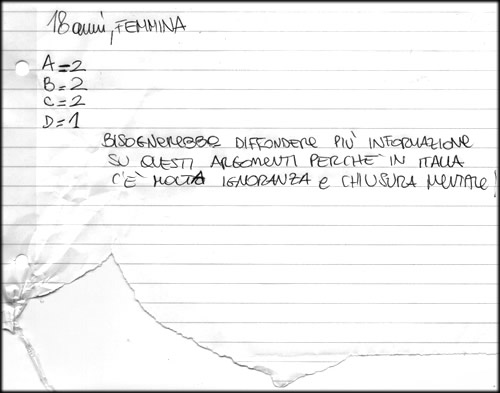 18 anni, FEMMINA
A=2
B=2
C=2
D=1
BISOGNEREBBE DIFFONDERE PIÙ INFORMAZIONE
SU QUESTI ARGOMENTI PERCHÈ IN ITALIA
C'È MOLTA IGNORANZA e CHIUSURA MENTALE!